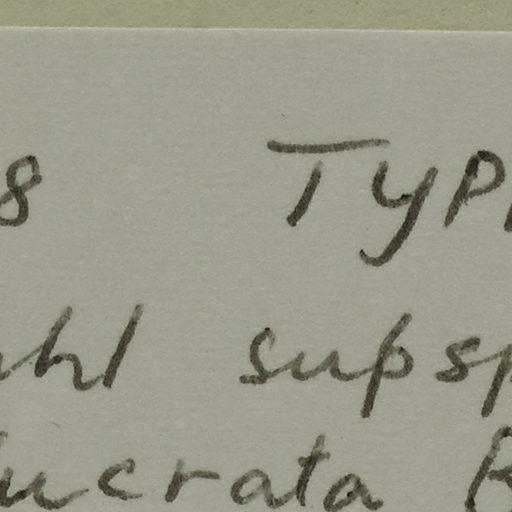 8 TYP
ahl supsp
lucrata B